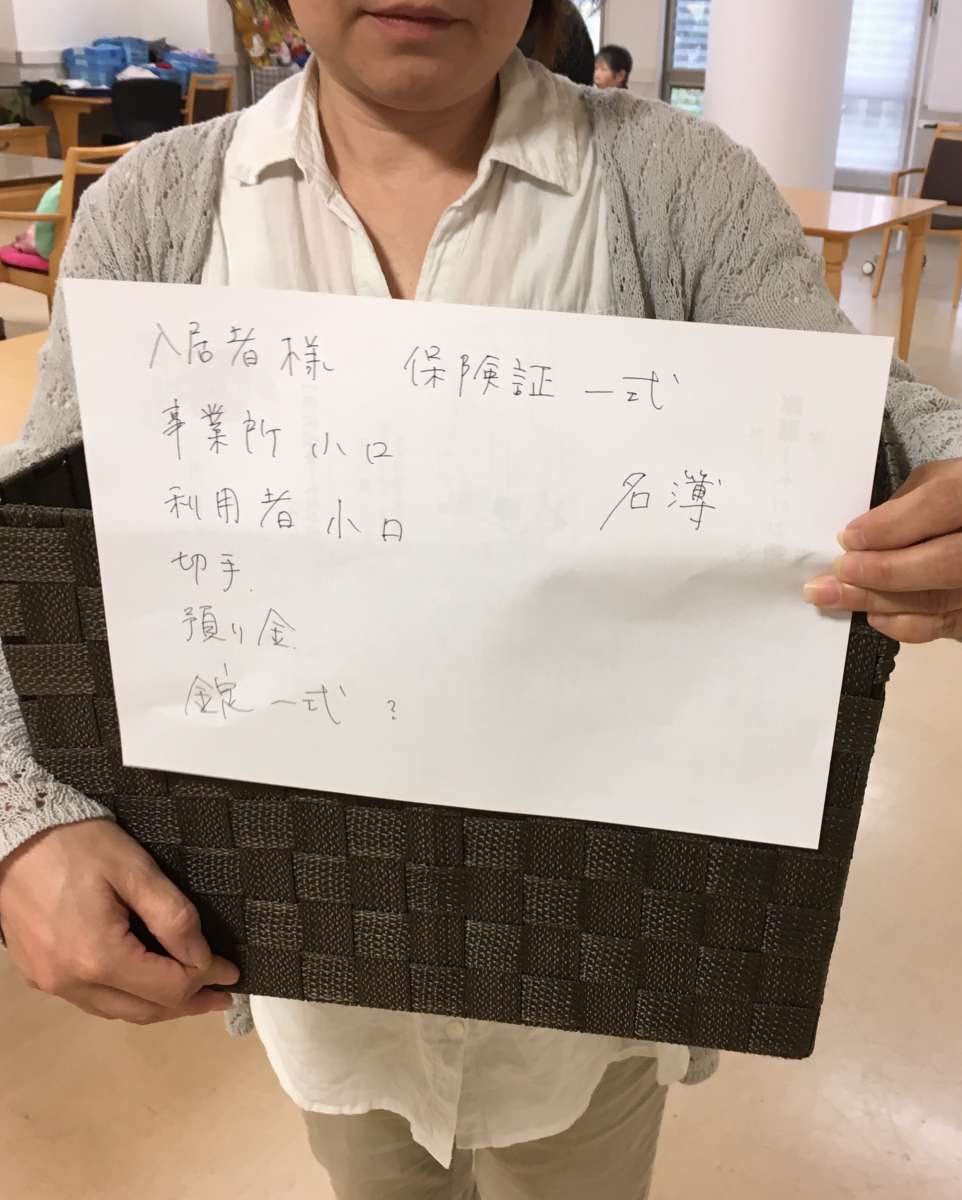 入居者様 保険証 一式
事業所 小口
利用者 小口
名簿
切手
預り金
錠 一式 ?